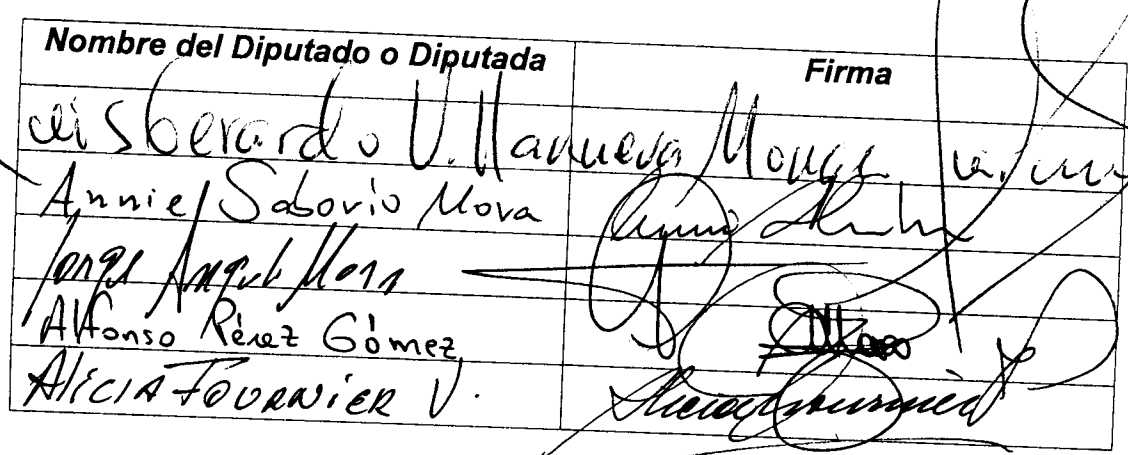 Nombre del Diputado o Diputada Firma
Luis Gerardo Villanueva Monge
Annie Saborío Mora
Jorge Angulo Mora
Alfonso Pérez Gómez
ALICIA FOURNIER V. Alicia Fournier